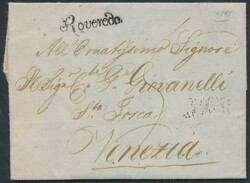 Roveredo
All Ornatissimo Signore
Il Sig. G. Giovanelli
Sta Fosca
Venezia